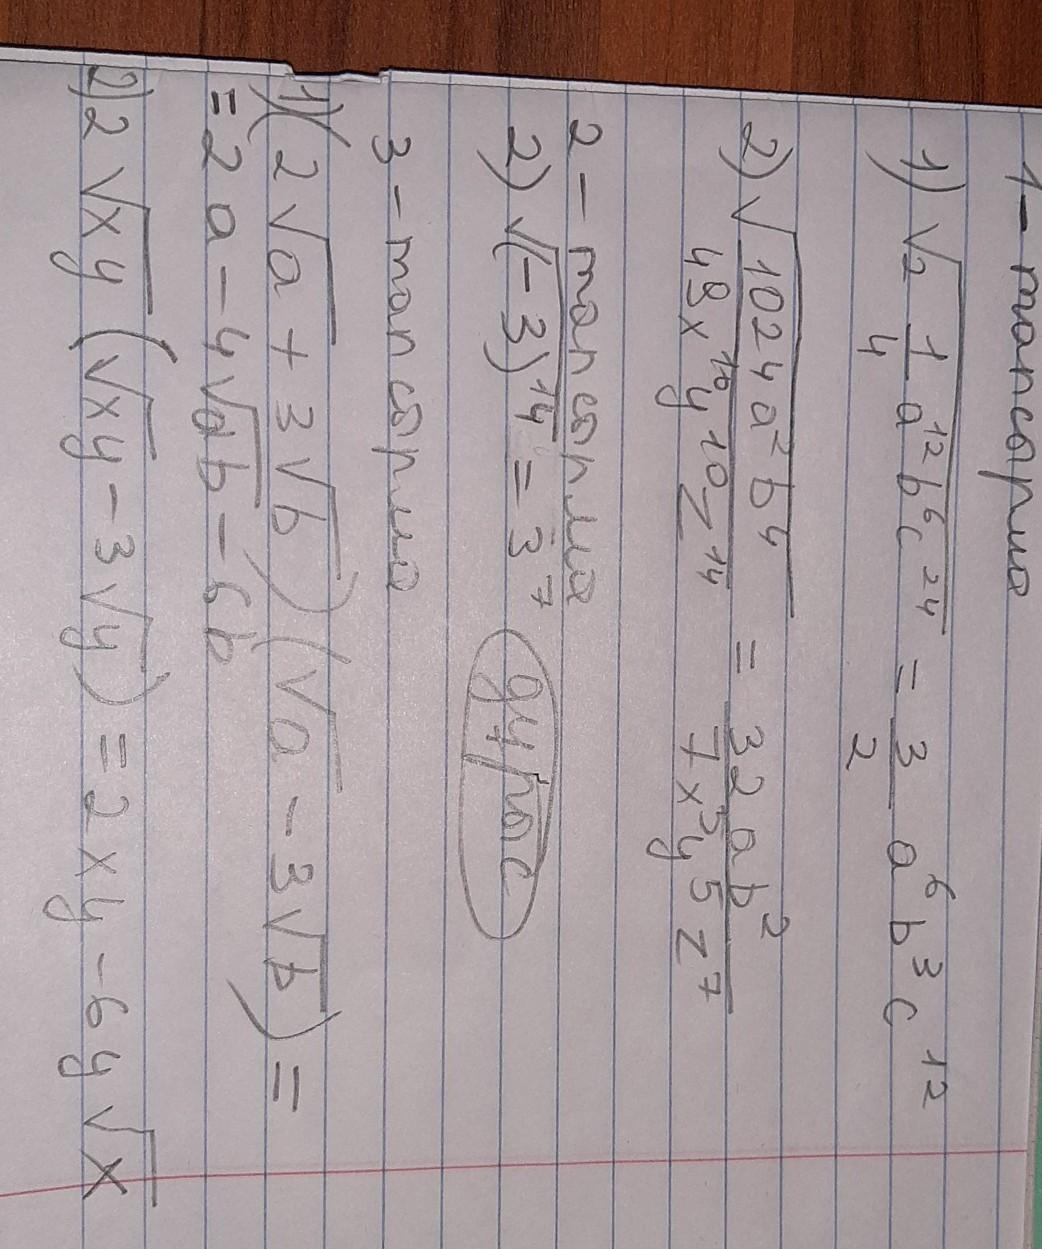 1-тапсырма
1) √2 1/4 a¹²b⁶c²⁴ = 3/2 a⁶b³c¹²
2) √1024a²b⁴/49x¹⁰y¹⁰z¹⁴ = 32ab²/7x⁵y⁵z⁷
2-тапсырма
2) √(-3)¹⁴ = 3⁷ дұрыс
3-тапсырма
1) (2√a + 3√b)(√a - 3√b) =
= 2a - 4√ab - 6b
2) 2√xy (√xy - 3√y) = 2xy - 6y√x